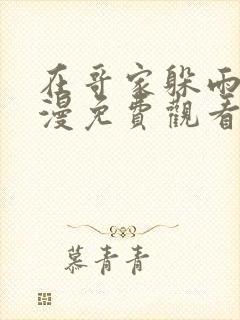 在哥家躲雨
漫免費觀看
慕青青